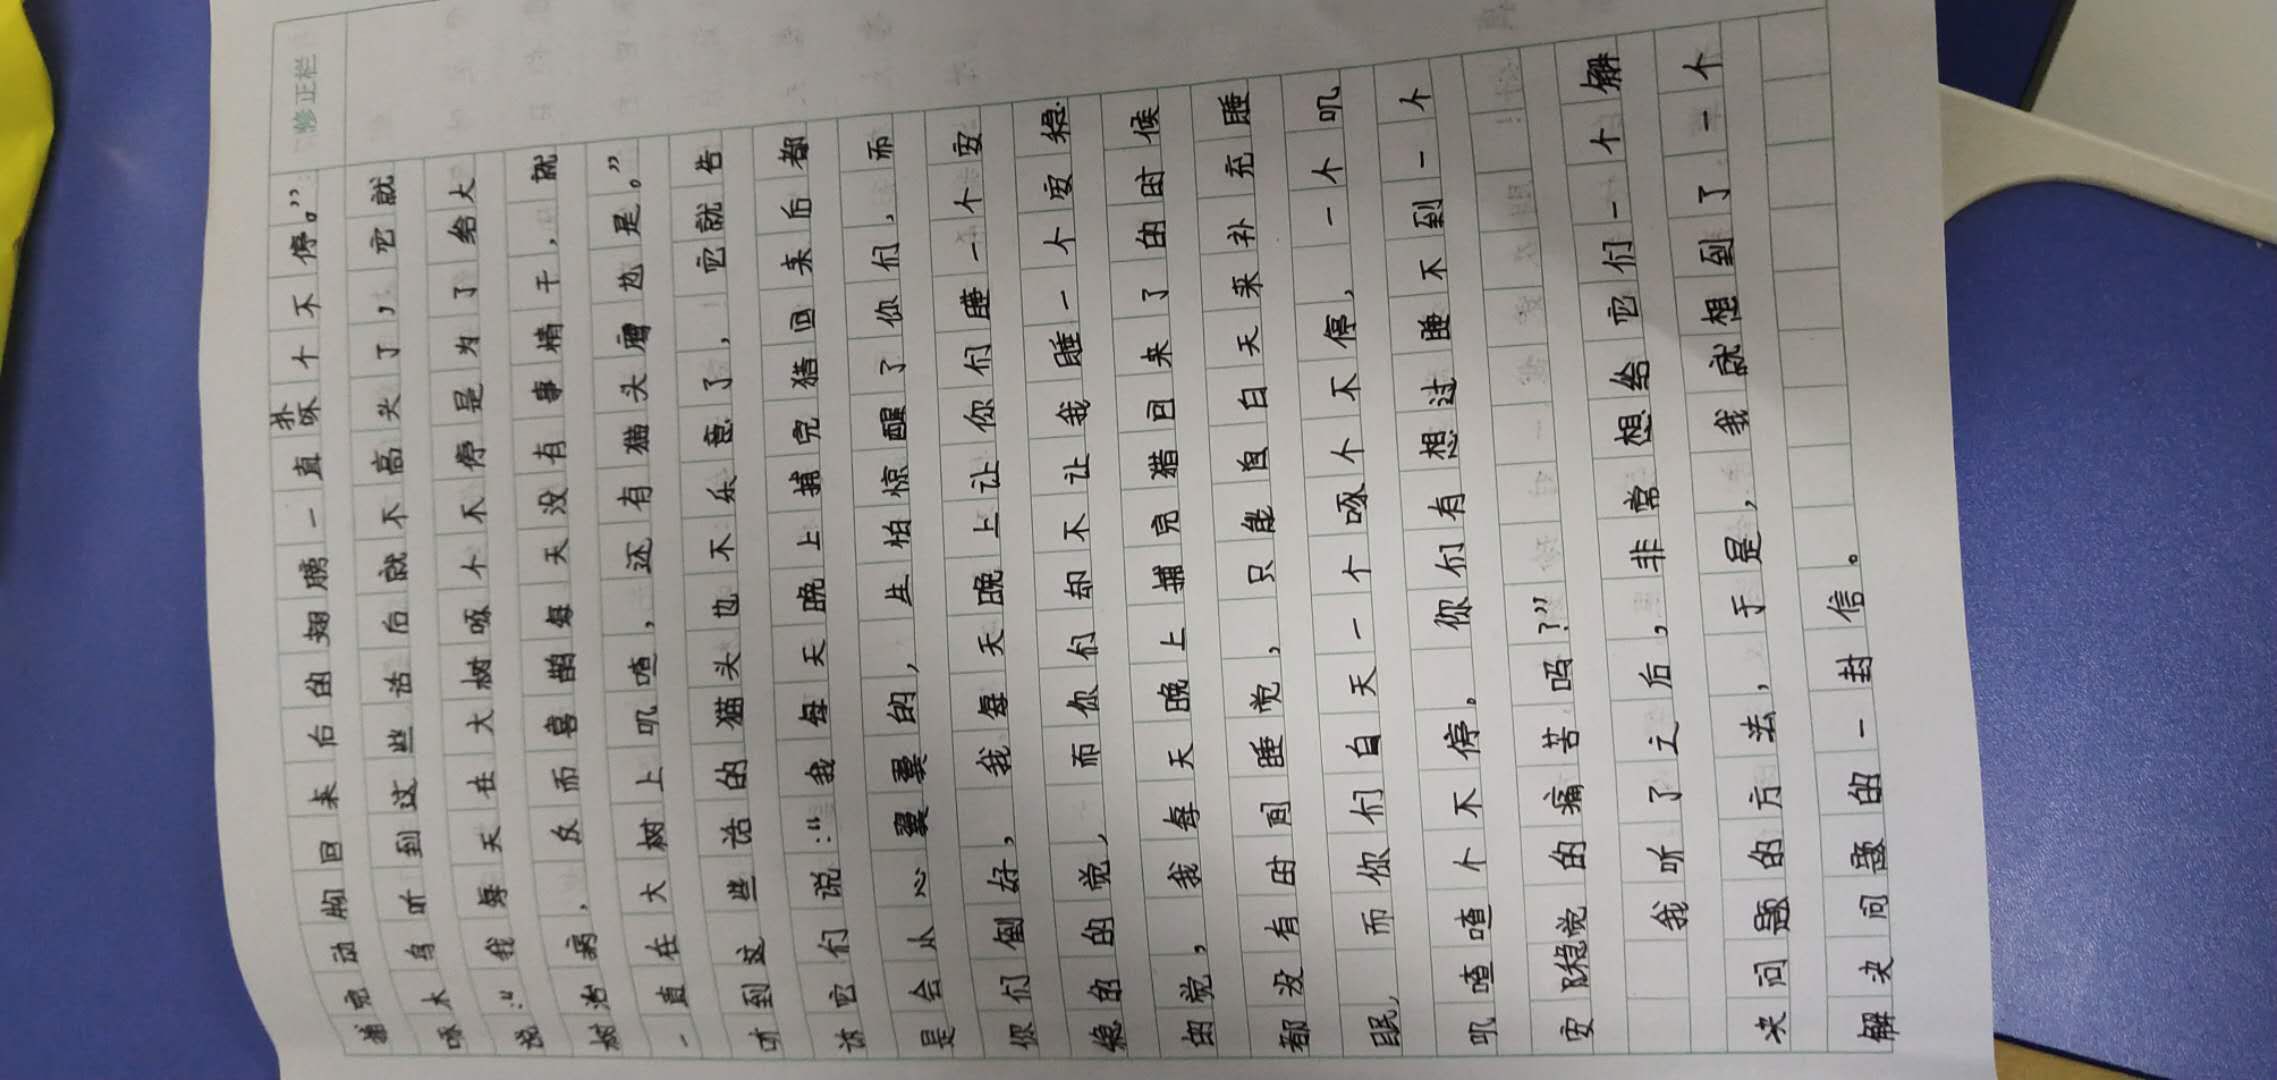 修正栏
捕完动物回来后的翅膀一直扑哧个不停。”
啄木鸟听到这些话后就不高兴了，它就
说：“我每天在大树啄个不停是为了给大
树治病，反而喜鹊每天没有事情干，就
一直在大树上叽喳，还有猫头鹰也是。”
听到这些话的猫头也不乐意了，它就告
诉它们说：“我每天晚上捕完猎回来后都
是会小心翼翼的，生怕惊醒了你们，而
你们倒好，我每天晚上让你们睡一个安
稳的的觉，而你们却不让我睡一个安稳
的觉，我每天晚上捕完猎回来了的时候
都没有时间睡觉，只能白天来补充睡
眠，而你们白天一个啄个不停，一个叽
叽喳喳个不停。你们有想过睡不到一个
安稳觉的痛苦吗？”
我听了之后，非常想给它们一个解
决问题的方法，于是，我就想到了一个
解决问题的一封信。